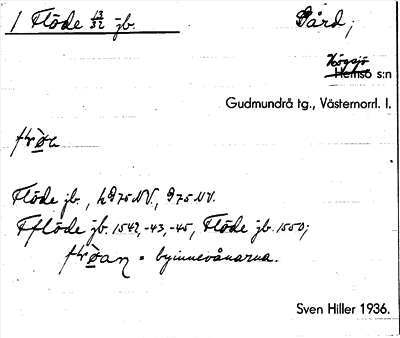 1 Flöde 13/32 jb. Gård;
Högsjö
Hemsö s:n
Gudmundrå tg., Västernorrl. l.
Flöde jb., 
Fflöde jb. 1542,-43,-45, Flöde jb. 1550;
= byinnevånarna.
Sven Hiller 1936.